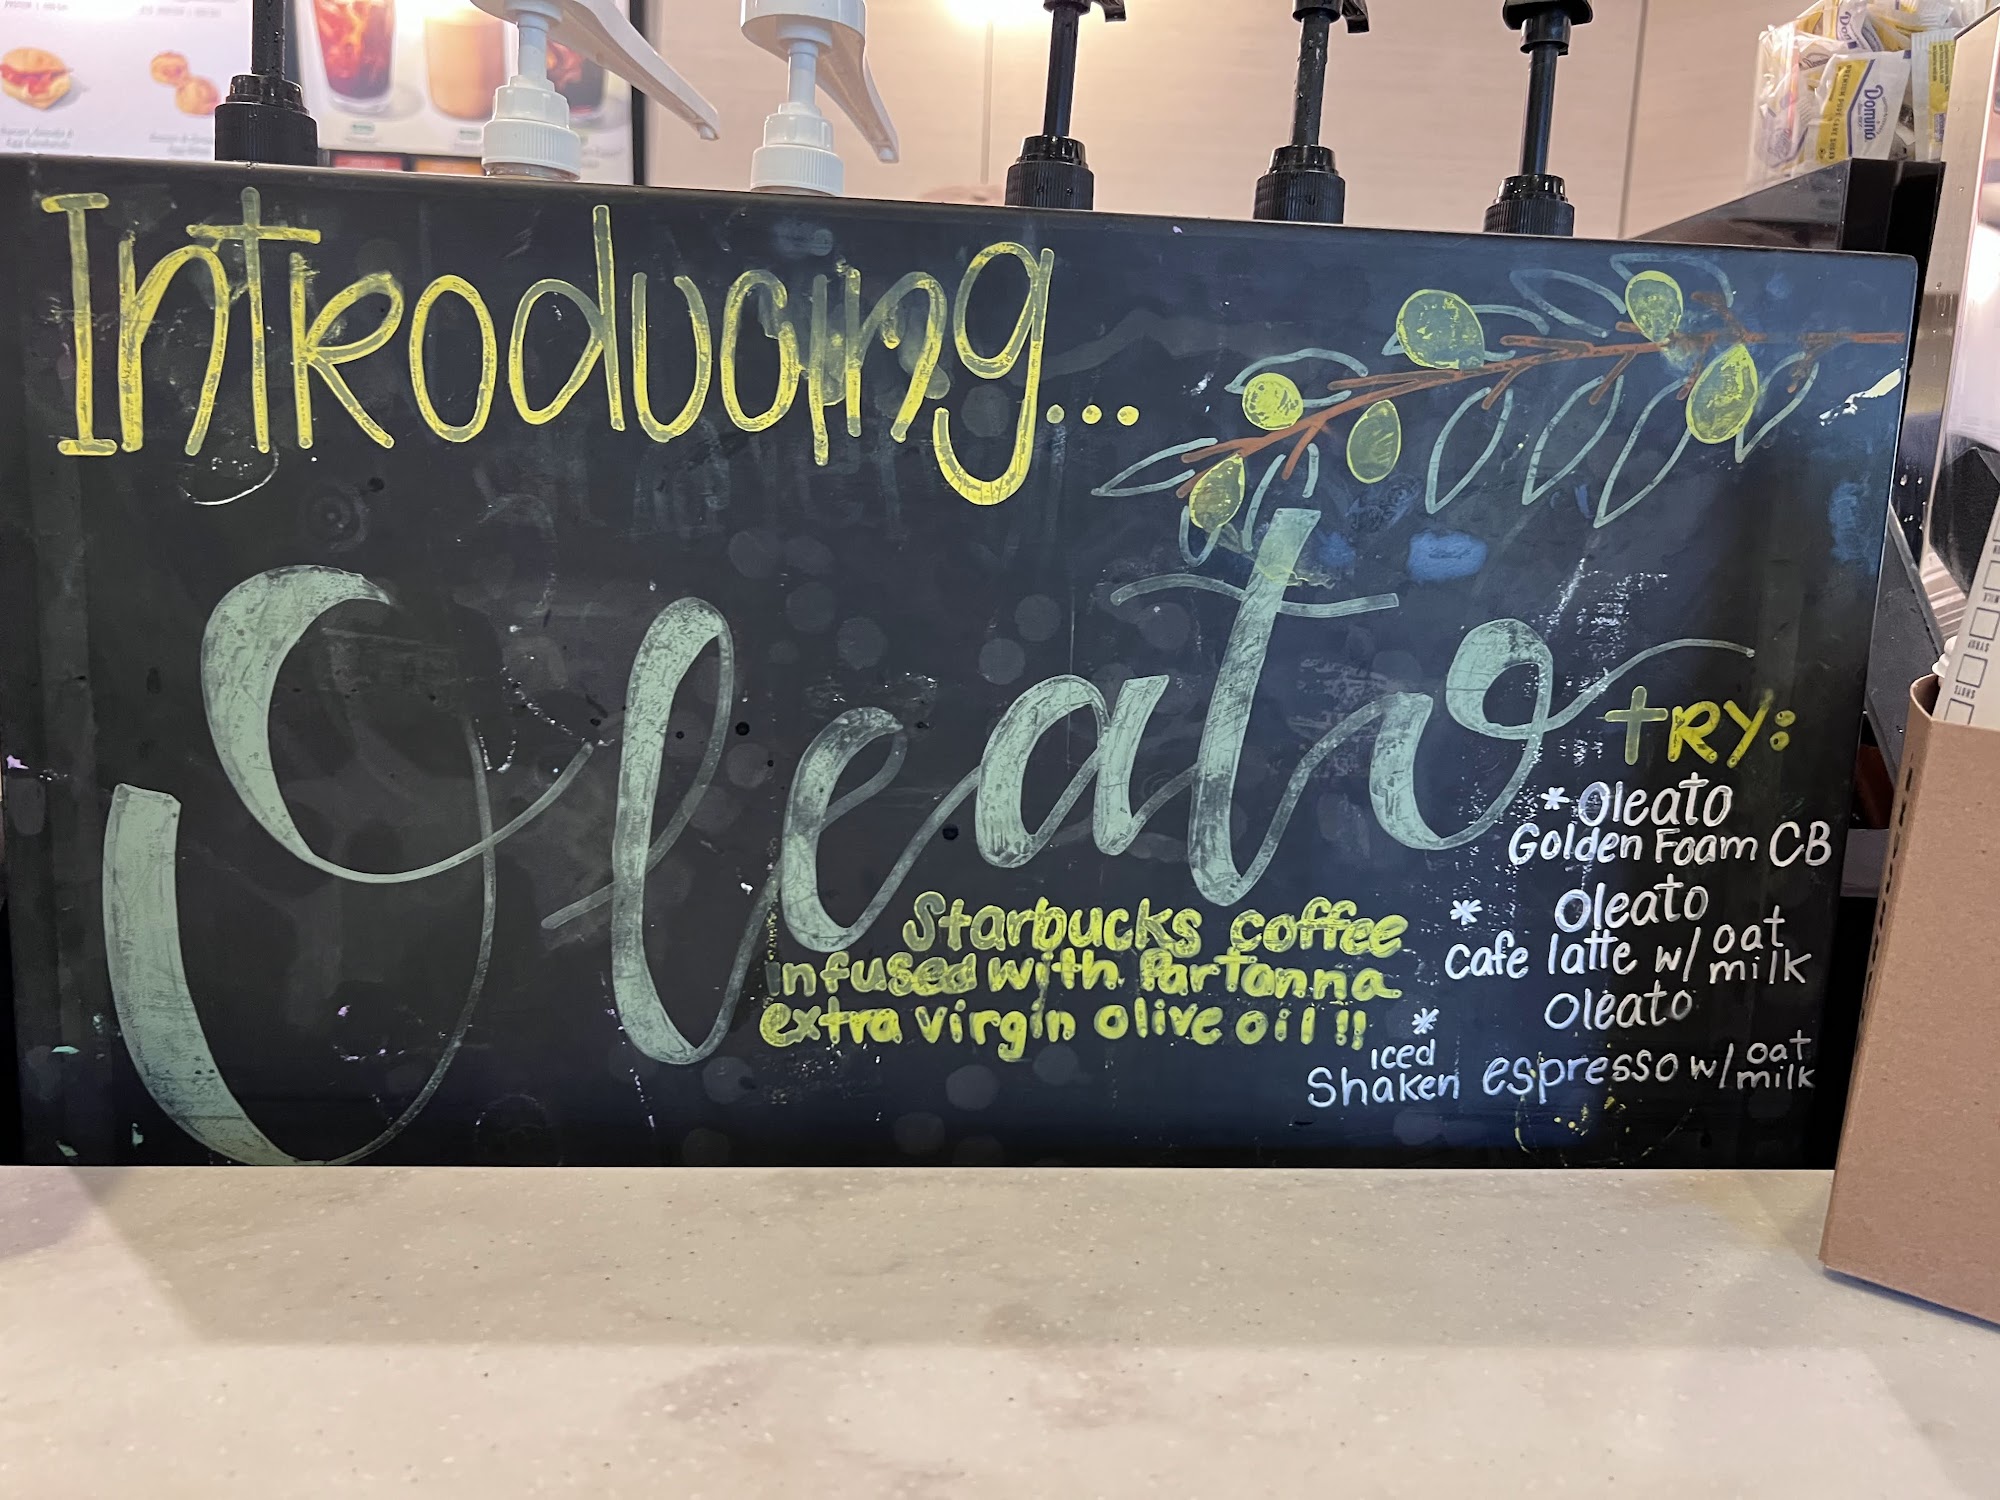 Introducing...
Oleato
Starbucks coffee
infused with Partanna
extra virgin olive oil!!
try:
* Oleato
Golden Foam CB
* Oleato
Cafe latte w/ oat milk
* Oleato
iced
Shaken espresso w/ oat milk
Domino
MILK
SYRUP
SHOTS